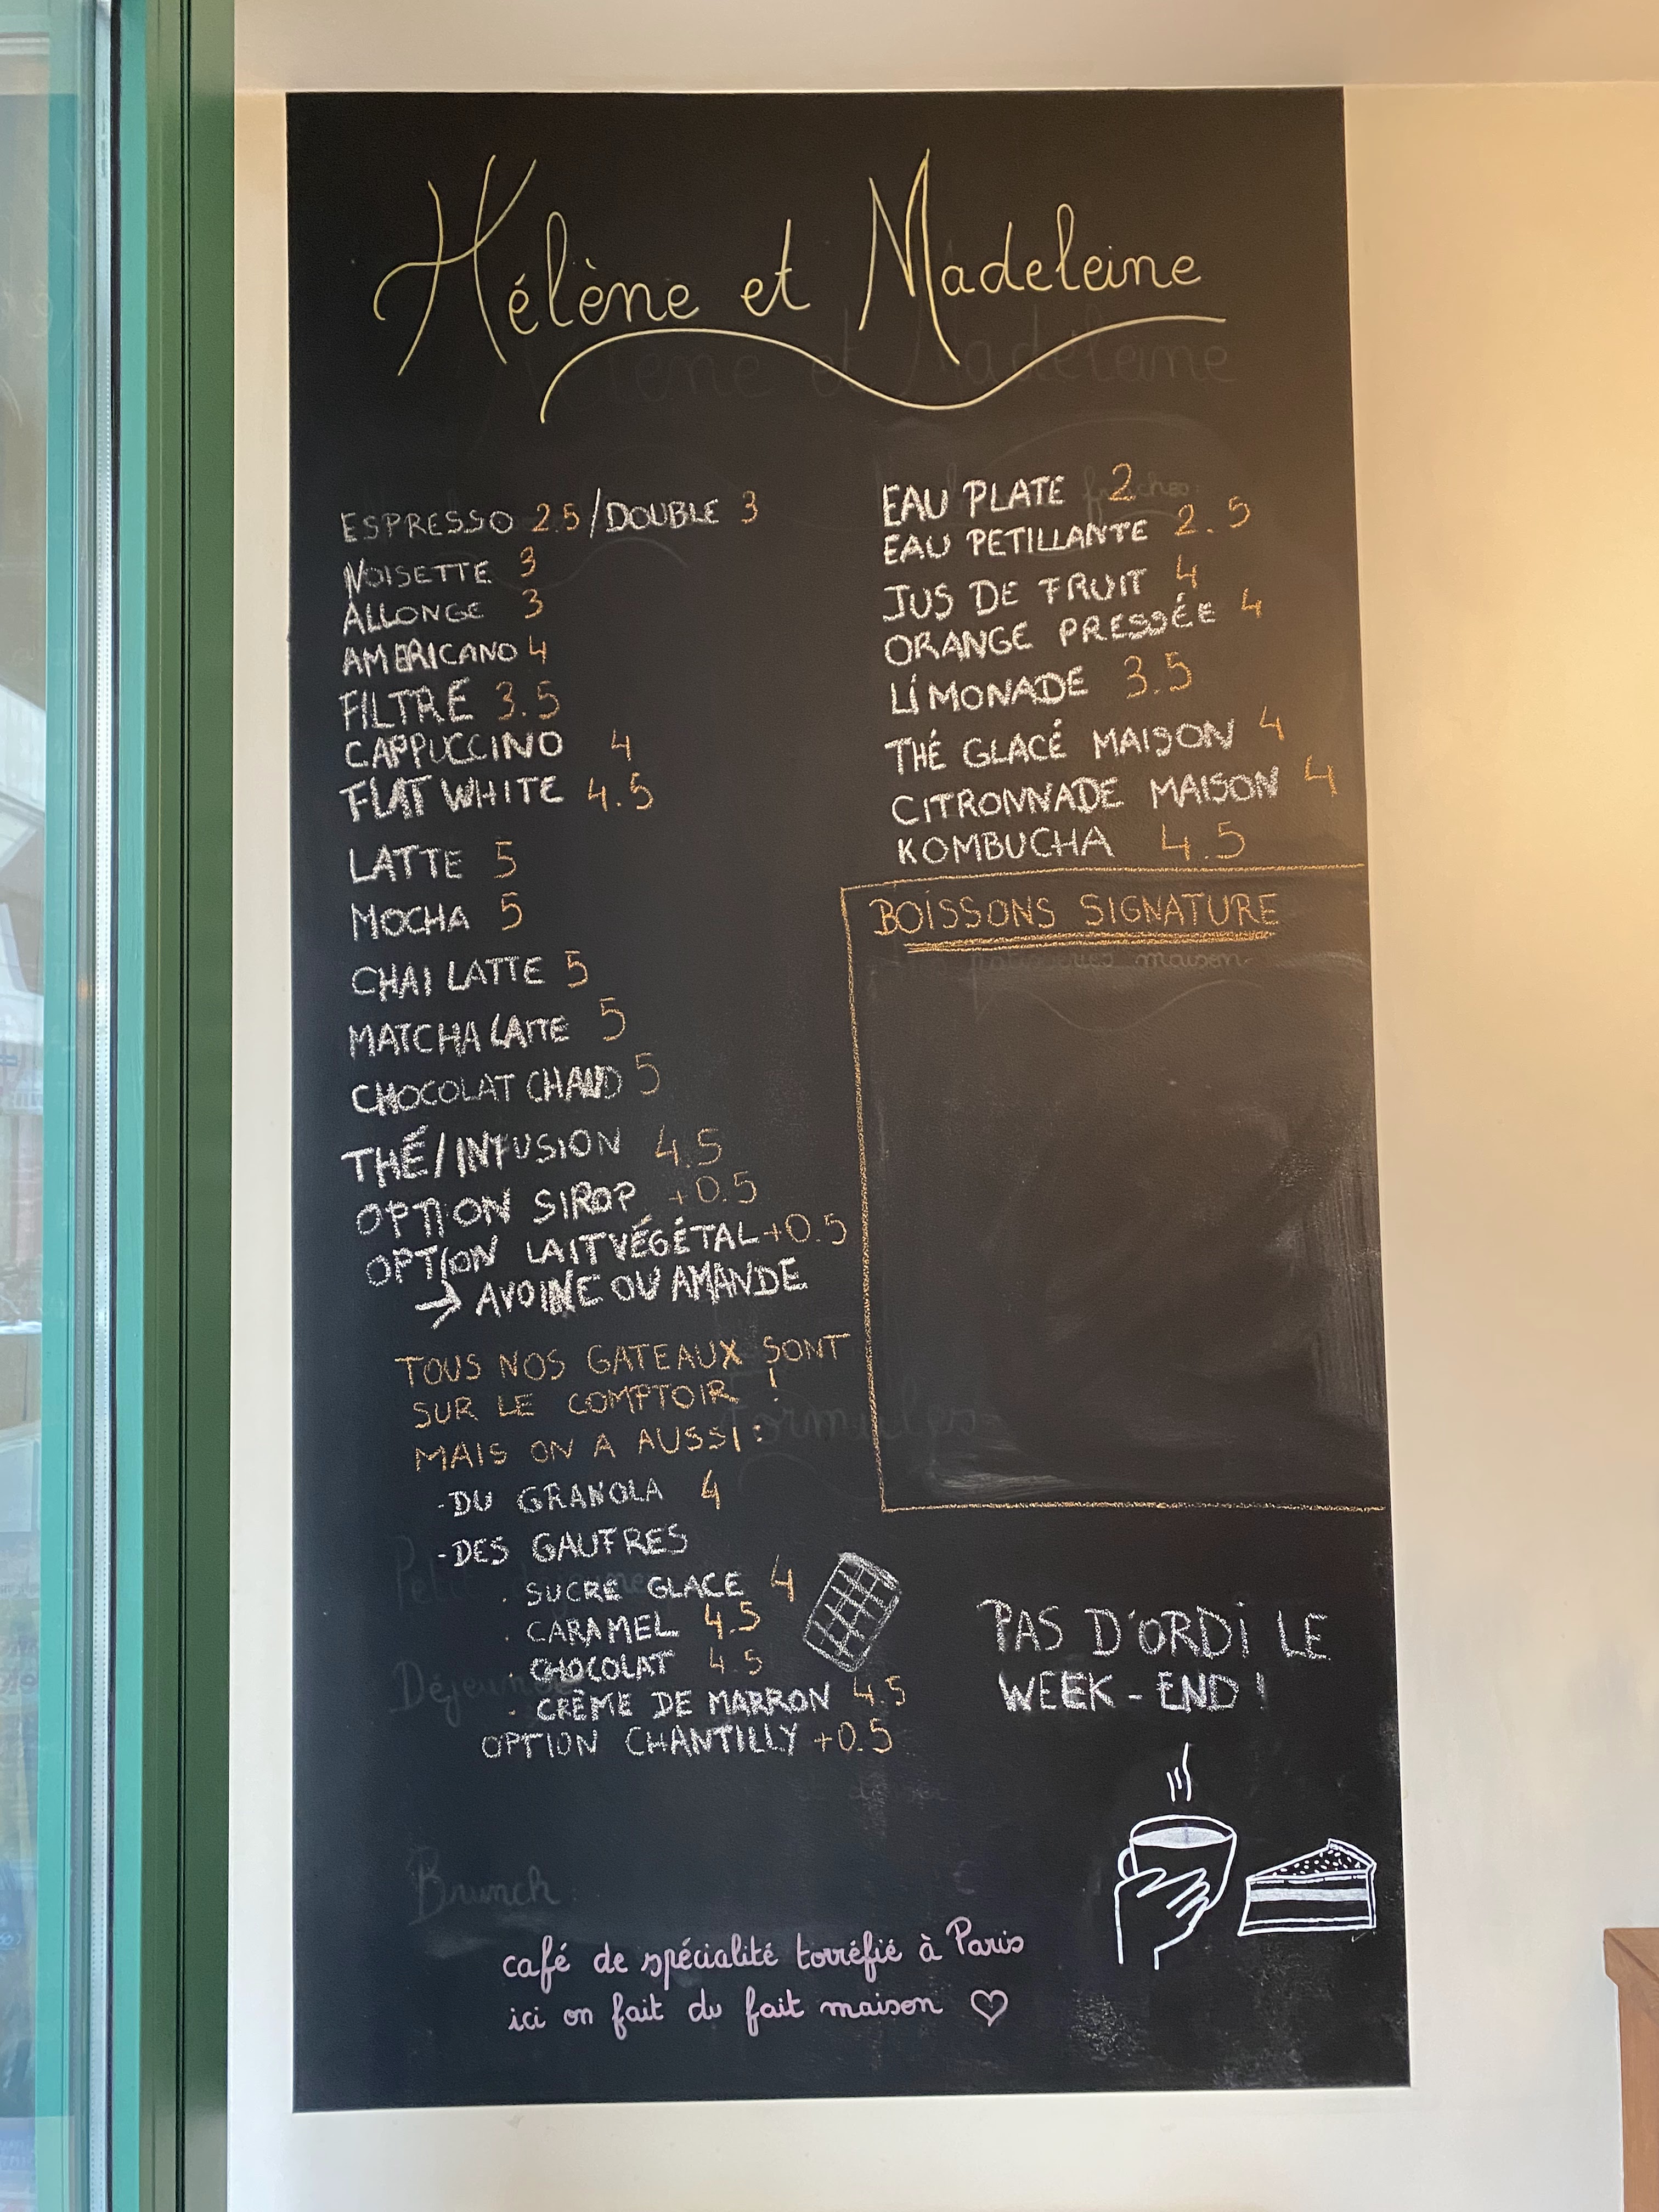 Hélène et Madeleine
ESPRESSO 2.5/DOUBLE 3
NOISETTE 3
ALLONGE 3
AMERICANO 4
FILTRE 3.5
CAPPUCCINO 4
FLAT WHITE 4.5
LATTE 5
MOCHA 5
CHAI LATTE 5
MATCHA LATTE 5
CHOCOLAT CHAUD 5
THÉ/INFUSION 4.5
OPTION SIROP +0.5
OPTION LAIT VÉGÉTAL +0.5
→ AVOINE OU AMANDE
TOUS NOS GATEAUX SONT
SUR LE COMPTOIR !
MAIS ON A AUSSI :
-DU GRANOLA 4
-DES GAUFRES
. SUCRE GLACE 4
. CARAMEL 4.5
. CHOCOLAT 4.5
. CRÈME DE MARRON 4.5
OPTION CHANTILLY +0.5
EAU PLATE 2
EAU PETILLANTE 2.5
JUS DE FRUIT 4
ORANGE PRESSÉE 4
LIMONADE 3.5
THÉ GLACÉ MAISON 4
CITRONNADE MAISON 4
KOMBUCHA 4.5
BOISSONS SIGNATURE
patisseries maison
Formules
Petit déjeuner
Déjeuner
Brunch
PAS D'ORDI LE
WEEK-END !
café de spécialité torréfié à Paris
ici on fait du fait maison ♡